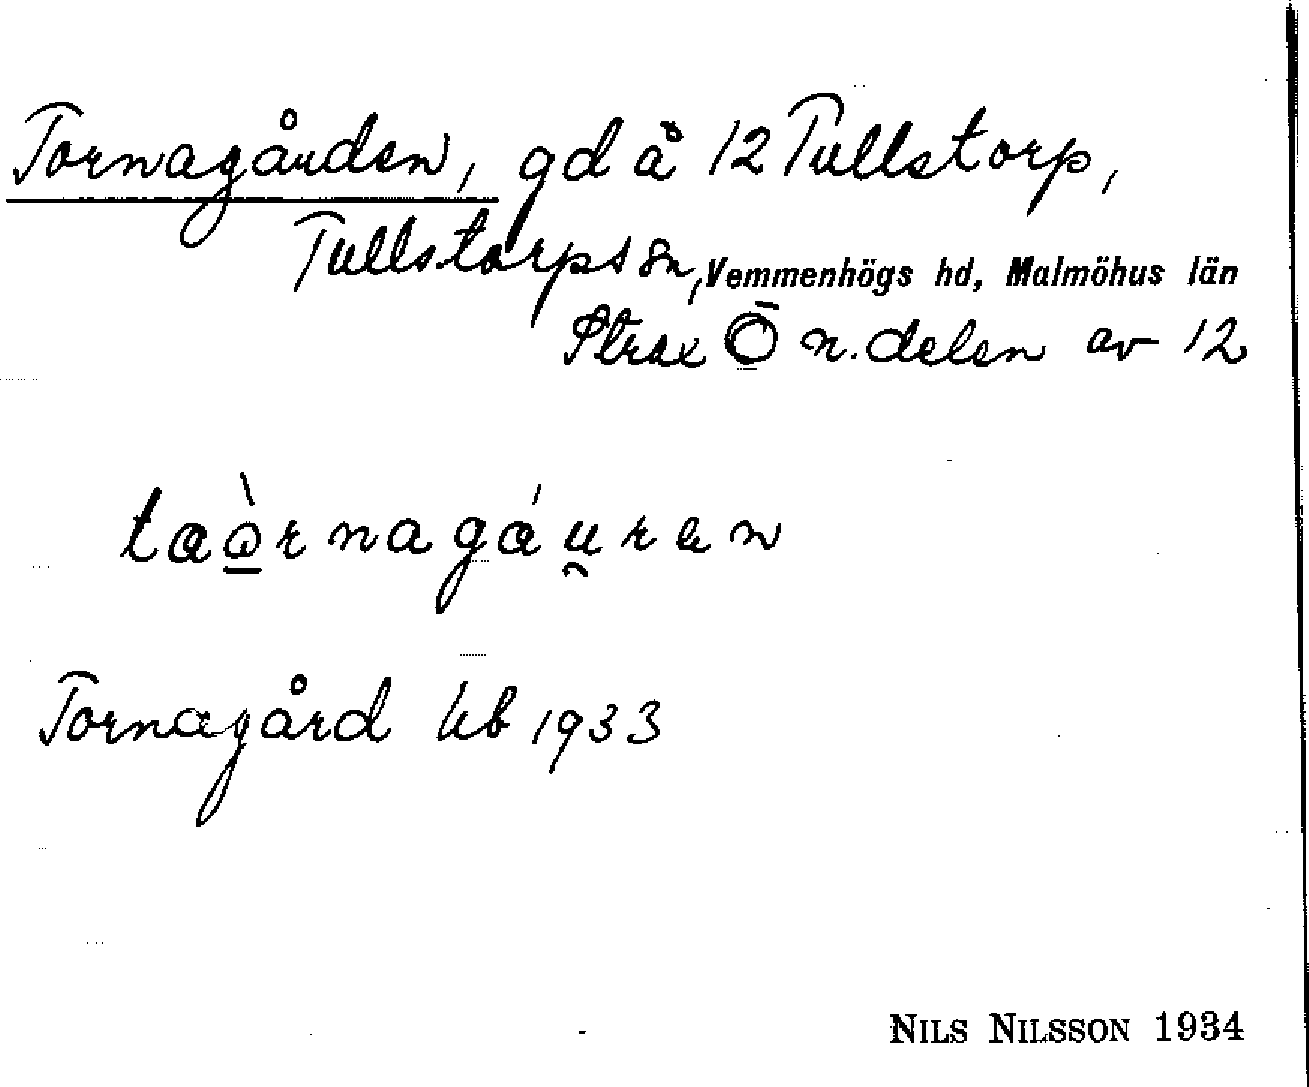 Tornagården, gd å 12 Tullstorp,
Tullstorps sn, Vemmenhögs hd, Malmöhus län
Strax Ö n. delen av 12
taò̠rnagáu̯ren
Tornagård kb 1933
NILS NILSSON 1934